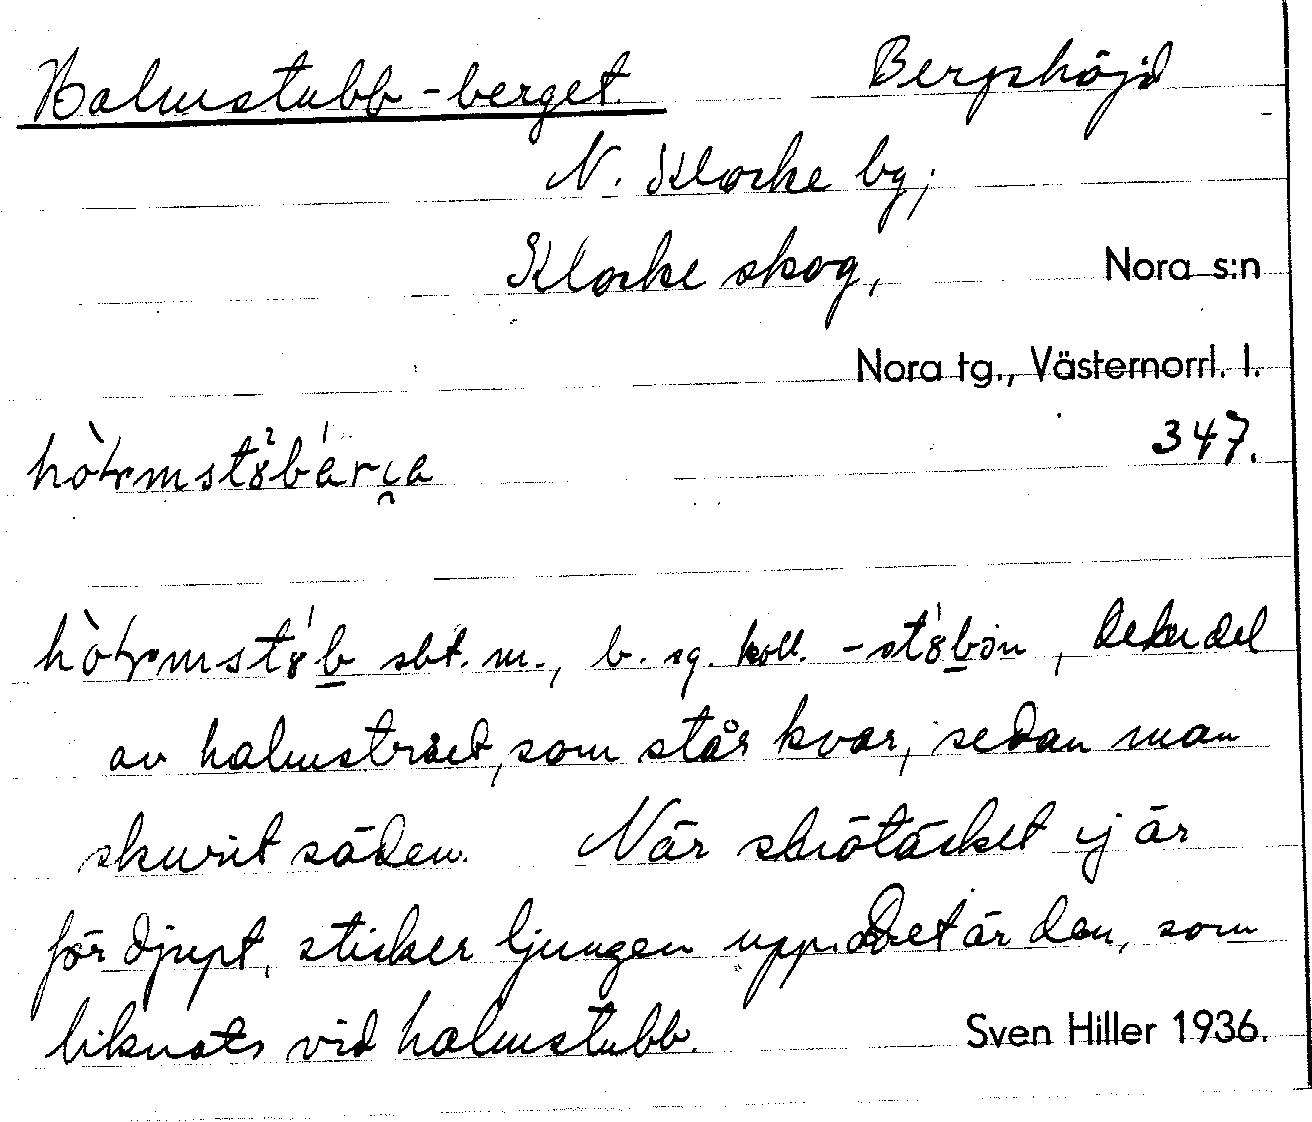 Halmstubb-berget Bergshöjd
N. Klocke by;
Klocke skog, Nora s:n
Nora tg., Västernorrl. l.
347.
sbt. m., b. sg. koll. den del
av halmstrået, som står kvar, sedan man
skurit säden. När snötäcket ej är
för djupt, sticker ljungen upp. Det är den, som
liknats vid halmstubb. Sven Hiller 1936.